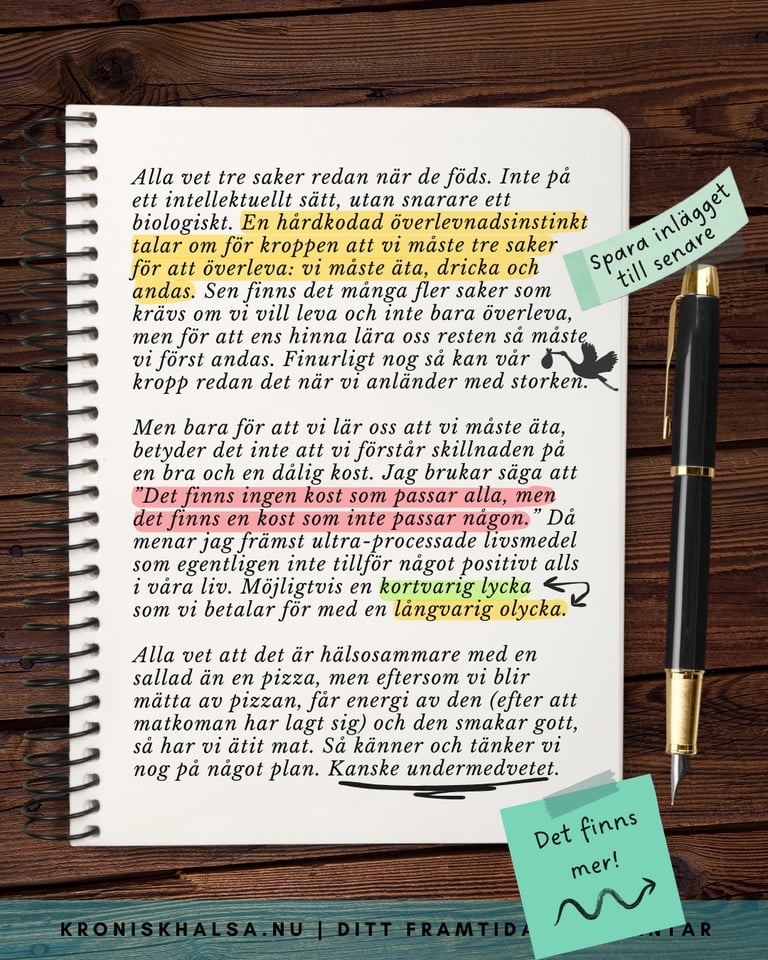 Alla vet tre saker redan när de föds. Inte på
ett intellektuellt sätt, utan snarare ett
biologiskt. En hårdkodad överlevnadsinstinkt
talar om för kroppen att vi måste tre saker
för att överleva: vi måste äta, dricka och
andas. Sen finns det många fler saker som
krävs om vi vill leva och inte bara överleva,
men för att ens hinna lära oss resten så måste
vi först andas. Finurligt nog så kan vår
kropp redan det när vi anländer med storken.
Spara inlägget
till senare
Men bara för att vi lär oss att vi måste äta,
betyder det inte att vi förstår skillnaden på
en bra och en dålig kost. Jag brukar säga att
"Det finns ingen kost som passar alla, men
det finns en kost som inte passar någon." Då
menar jag främst ultra-processade livsmedel
som egentligen inte tillför något positivt alls
i våra liv. Möjligtvis en kortvarig lycka
som vi betalar för med en långvarig olycka.
Alla vet att det är hälsosammare med en
sallad än en pizza, men eftersom vi blir
mätta av pizzan, får energi av den (efter att
matkoman har lagt sig) och den smakar gott,
så har vi ätit mat. Så känner och tänker vi
nog på något plan. Kanske undermedvetet.
Det finns
mer!
KRONISKHALSA.NU | DITT FRAMTIDA